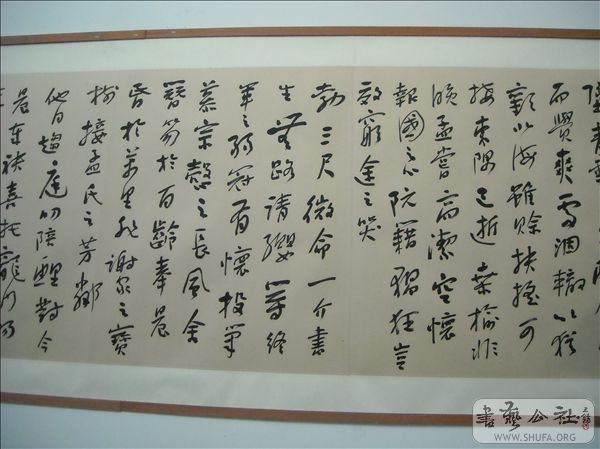 青雲
而覺爽處涸轍以猶
歡北海雖賒扶搖可
接東隅已逝桑榆非
晚孟嘗高潔空懷
報國之心阮籍猖狂豈
效窮途之哭
勃三尺微命一介書
生無路請纓等終
軍之弱冠有懷投筆
慕宗愨之長風舍
簪笏於百齡奉晨
昏於萬里非謝家之寶
樹接孟氏之芳鄰
他日趨庭叨陪鯉對今
晨奉袂喜托龍門
書藝公社
WWW.SHUFA.ORG